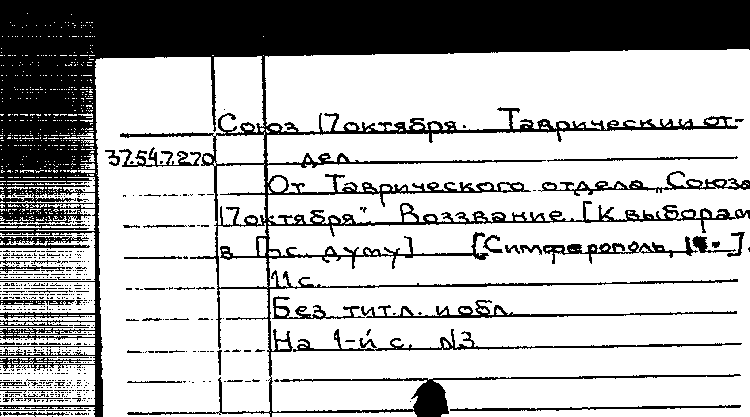 Союз 17 октября. Таврический от-
37.54.7.270 дел.
От Таврического отдела „Союза
17 октября". Воззвание. [К выборам
в Гос. думу] [Симферополь,
11 с.
Без тит. л. и обл.
На 1-й с. №3